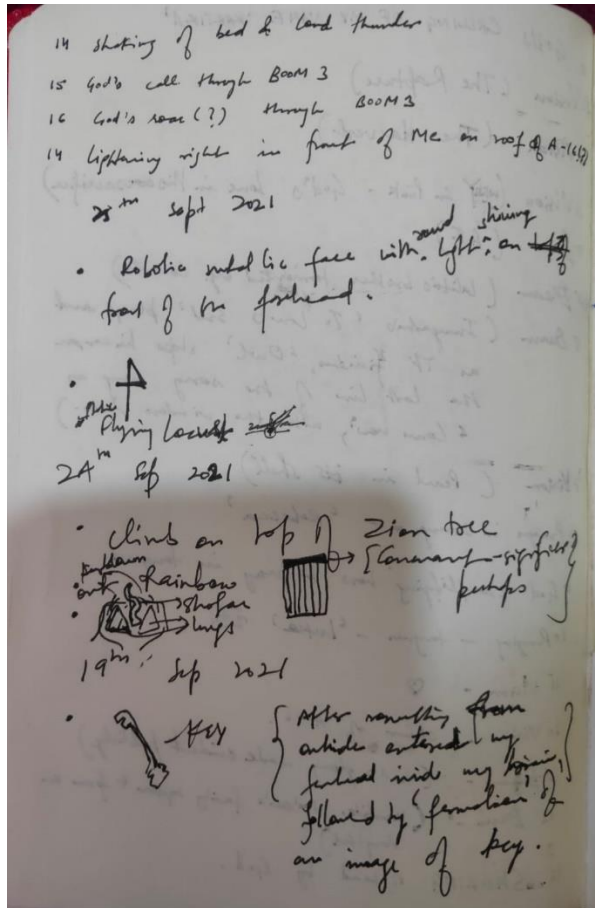 14 shaking of bed & loud thunder
15 God's call through BOOM 3
16 God's roar (?) through BOOM 3
14 Lightening right in front of Me on roof of A-16
25th Sept 2021
• Robotic metallic face with round shining light on
front of the forehead.
•
Flying Locust
24th Sep 2021
• Climb on top of Zion tree
{Covenant - signifies
perhaps}
Rainbow
• Shofar
lungs
19th Sep 2021
• Key
{After something from
outside entered my
my brain,
followed by 'formation' of
an image of key.}